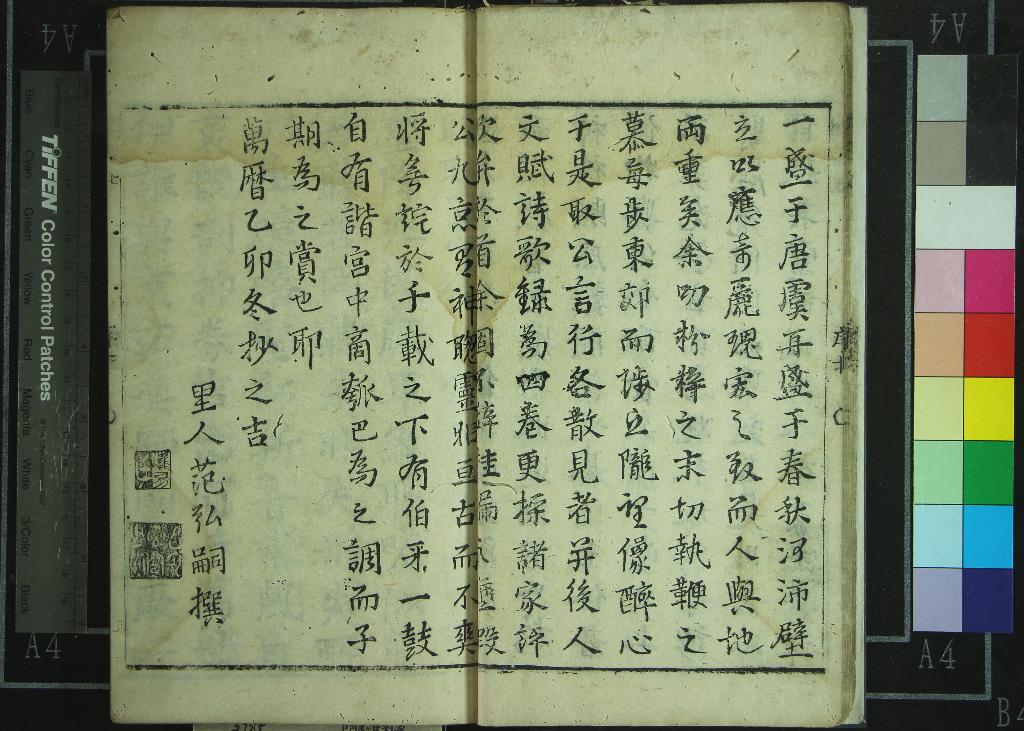 一盛于唐虞再盛于春秋河沛壁
立以應奇麗瑰宏之致而人與地
兩重矣余叨粉梓之末切執鞭之
慕每步東郊而陟丘隴望像醉心
于是取公言行各散見者并後人
文賦詩歌錄為四卷更採諸家評
次弁於首余固掛漏之
公九京有神聰靈壯亘古而不爽
將無詫於千載之下有伯牙一鼓
自有諧宮中商瓠巴為之調而子
期為之賞也耶
萬曆乙卯冬抄之吉
里人范弘嗣撰
TIFFEN Color Control Patches
Blue
Cyan
Green
Yellow
Red
Magenta
White
3/Color
Black
A4
A4
A4
A4
B4